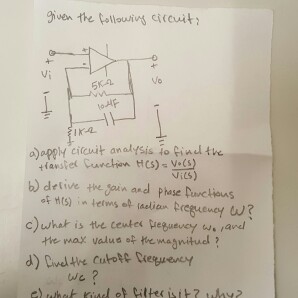 given the following circuit:
+
-
+
Vi
-
5K-Ω
10μF
1K-Ω
+
Vo
-
a) apply circuit analysis to find the
transfer function H(s) = Vo(s)/Vi(s)
b) derive the gain and phase functions
of H(s) in terms of radian frequency ω?
c) what is the center frequency ωo, and
the max value of the magnitude?
d) find the cutoff frequency
ωc?
e) what kind of filter is it? why?